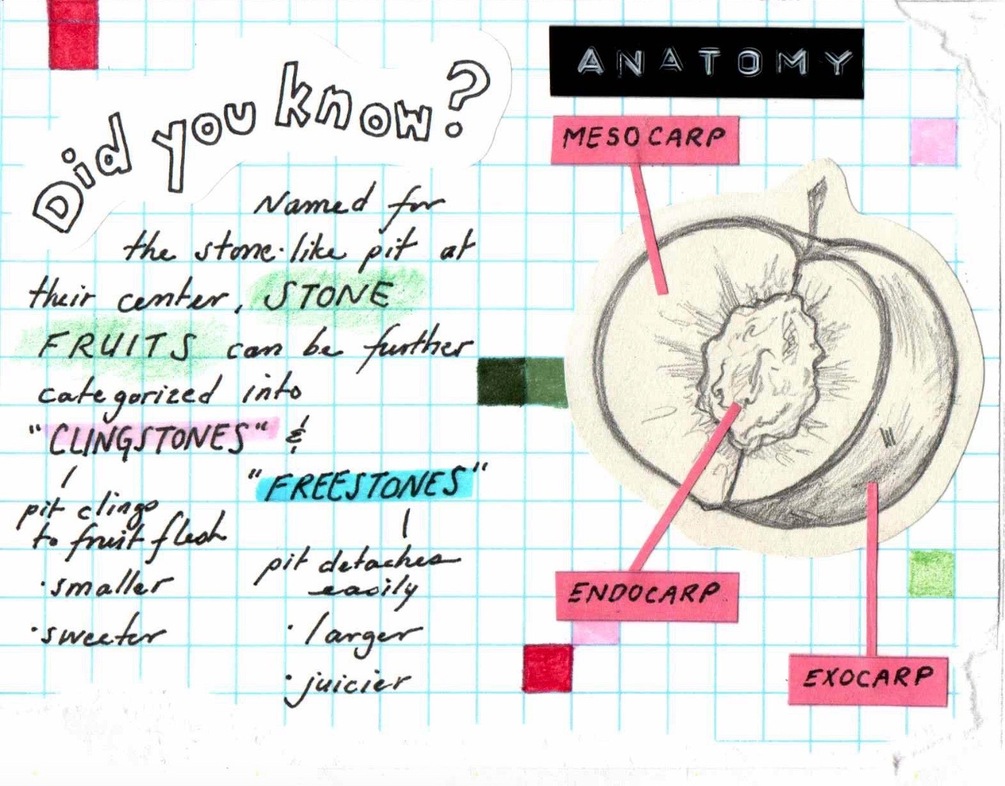 Did you know?
Named for
the stone-like pit at
their center, STONE
FRUITS can be further
categorized into
"CLINGSTONES" &
"FREESTONES"
pit clings
to fruit flesh
· smaller
· sweeter
pit detaches
easily
· larger
· juicier
ANATOMY
MESOCARP
ENDOCARP
EXOCARP